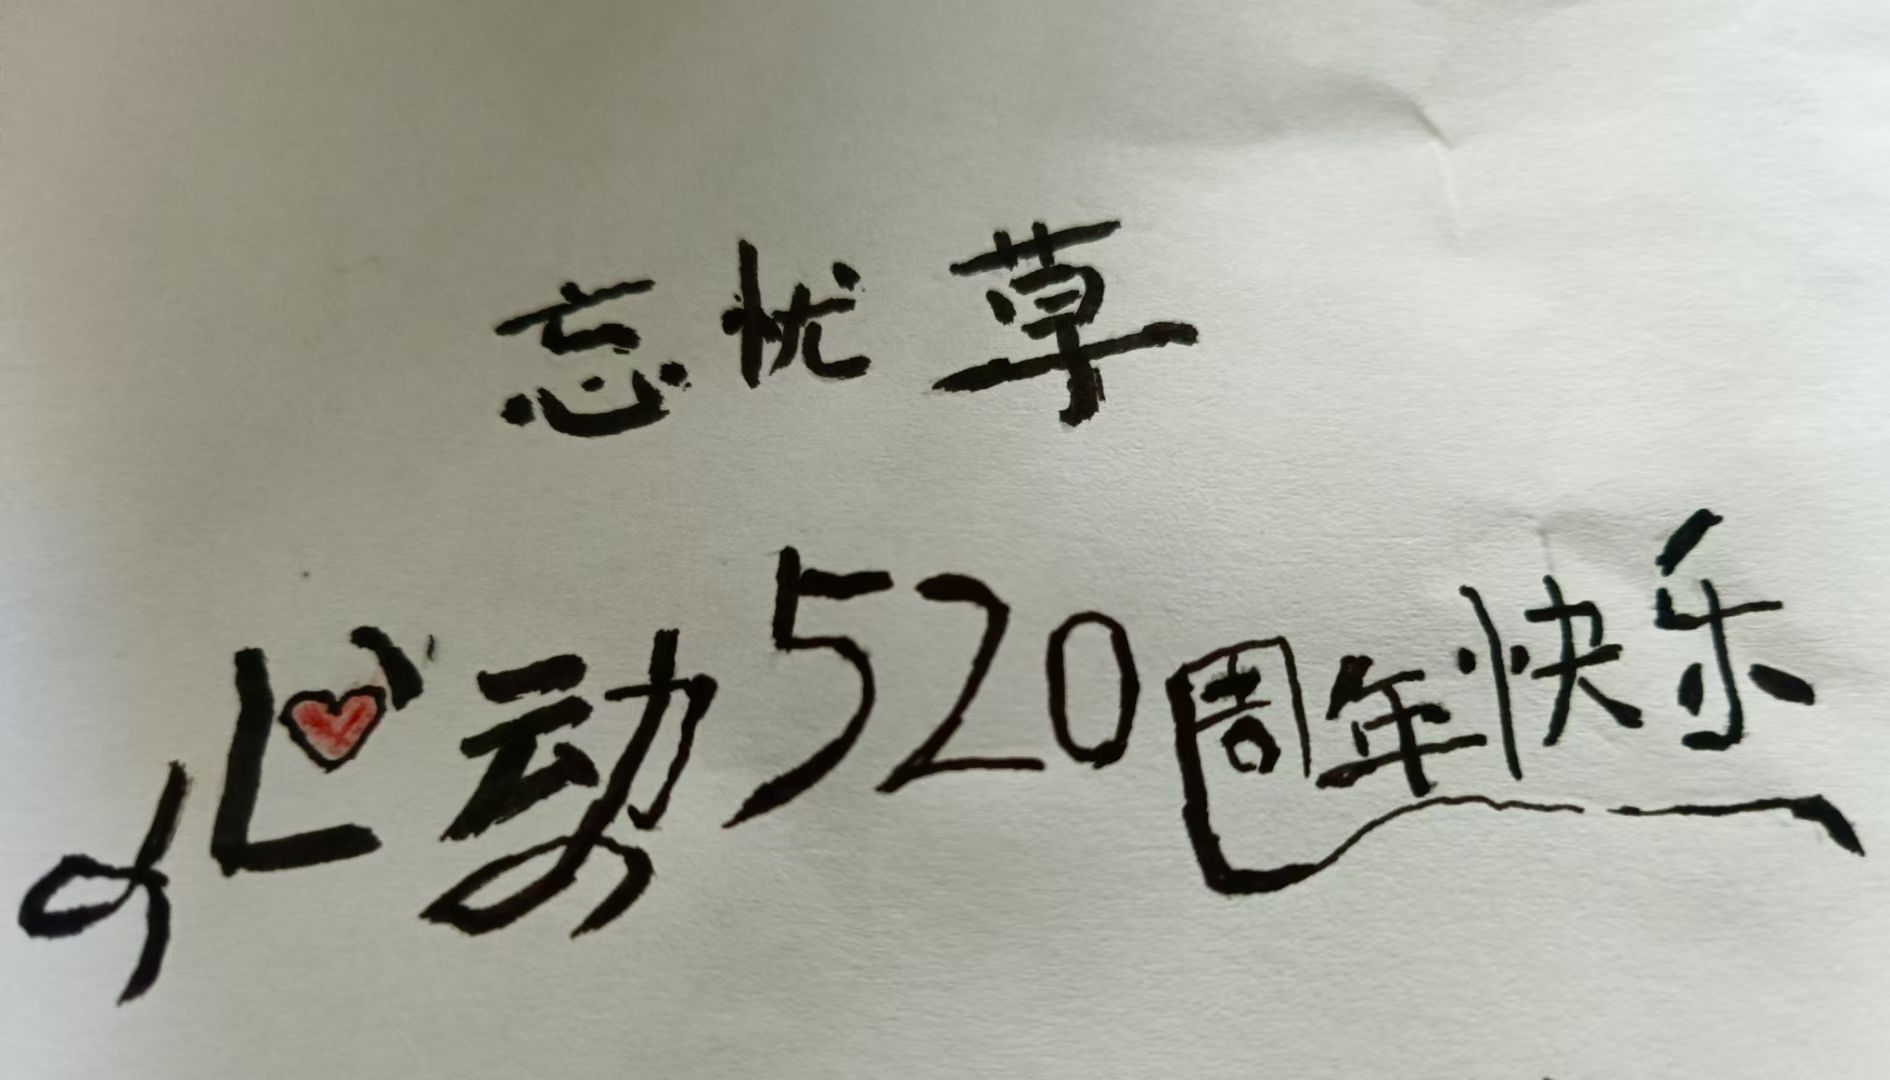 忘忧草
心动520周年快乐